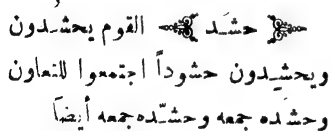 حشَد القوم يحشُدون
ويحشِدون حشوداً اجتمعوا للتعاون
وحشَده جمعه وحشّده جمعه أيضاً